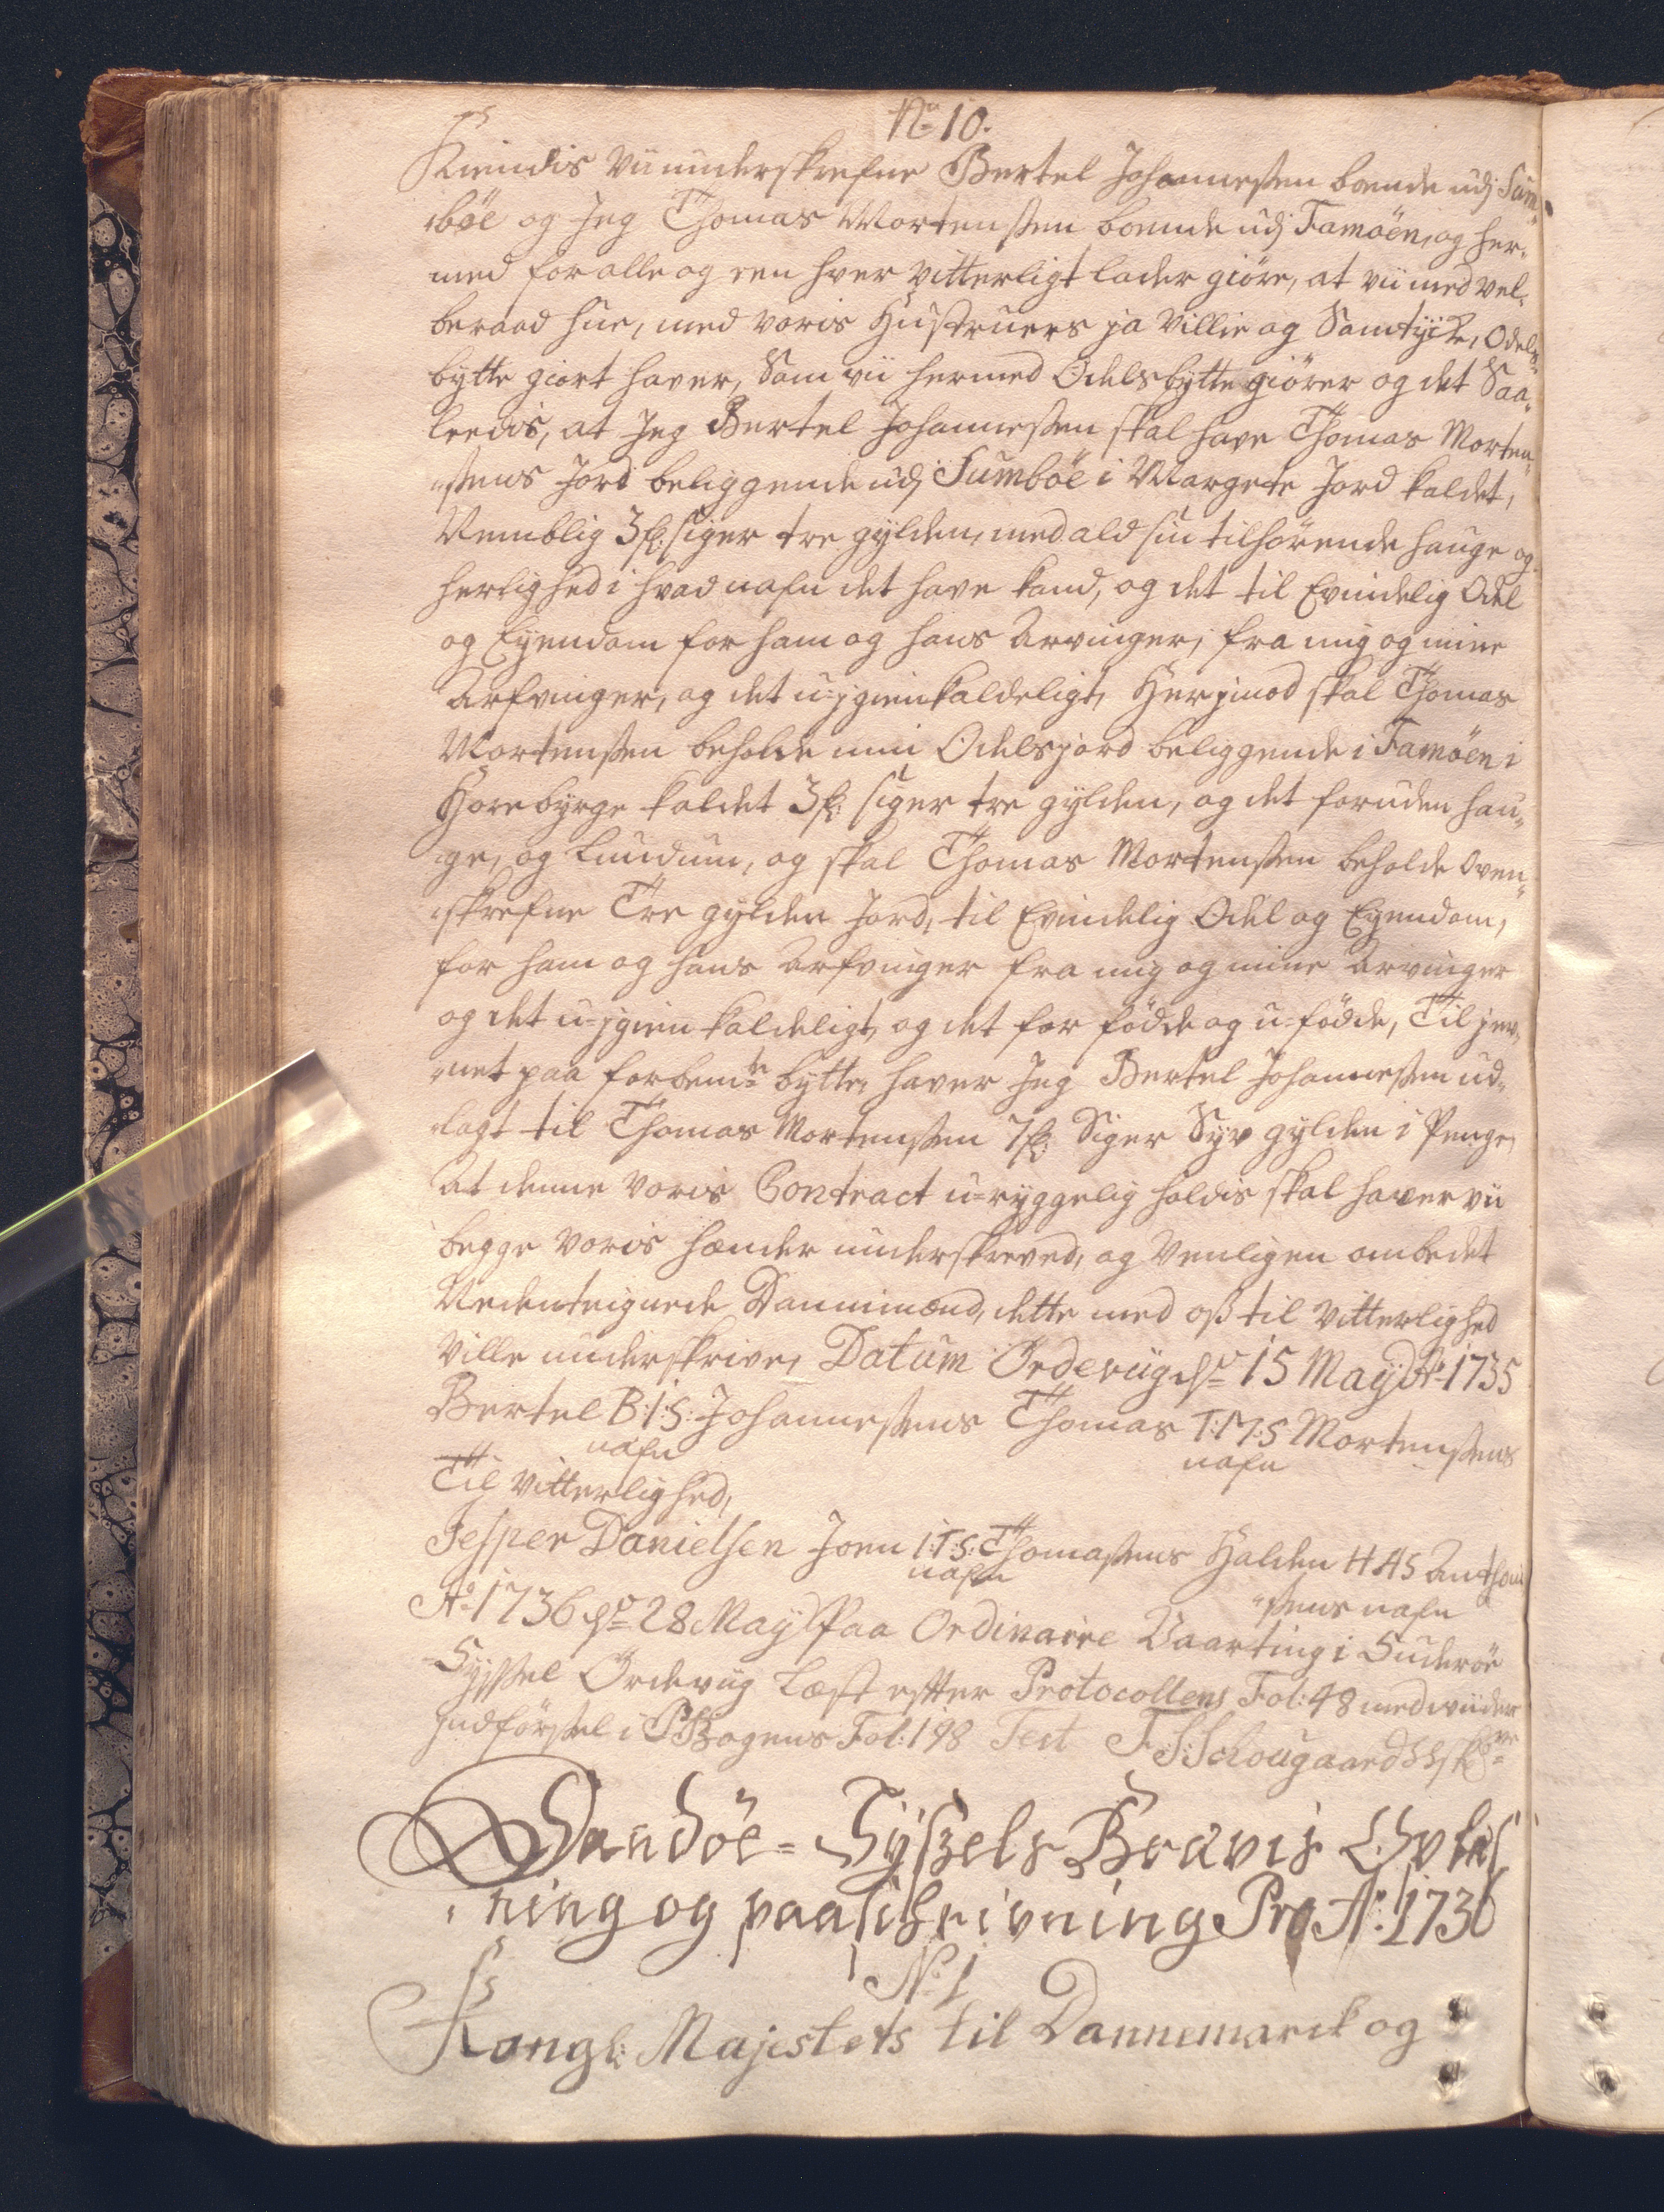 No 10.
Kiendis Vii underskrefne Bertel Johannesen boende udj Sum¬
böe og Jeg Thomas Mortensen boende udj Famöen, og her¬
med for alle og een hver vitterligt lader giöre, at vii med vel¬
beraad hue, med voris Hustruers ja Villie og Samtycke, Odels
bytte giort haver, Som vii hermed Odelsbytte giörer og det Saa¬
leedis, at Jeg Bertel Johannesen skal have Thomas Morten¬
sens Jord beliggende udj Sumböe i Margrete Jord kaldet,
Nemblig 3 fl: siger tre gylden, med ald sin tilhörende hauge og
herlighed i hvad nafn det have kand, og det til Evindelig Odel
og Eyendom for ham og hans Arvinger, fra mig og mine
Arfvinger, og det u-jgienkaldeligt, Herjmod skal Thomas
Mortensen beholde min Odelsjord beliggende i Famöen i
Horebyrge kaldet 3 fl: siger tre gylden, og det foruden hau¬
ge, og Lundum, og skal Thomas Mortensen beholde oven¬
skrefne Tre gylden Jord, til Evindelig Odel og Eyendom,
for ham og hans Arfvinger fra mig og mine Arvinger
og det u-jgienkaldeligt, og det for födde og u-födde, Til jev¬
net paa forbemte bytte, haver Jeg Bertel Johannesen ud¬
lagt til Thomas Mortensen 7 fl: Siger Syv gylden i Penge,
At denne voris Contract u-ryggelig holdis skal haver vii
begge voris hænder underskreved, og Venligen ombedet
Nedenteignede Dannimænd, dette med oss til vitterlighed
Ville underskrive, Datum Ördevüg dd 15 Mayj Ao 1735
Bertel B:I:S: Johannesens Thomas T:M:S Mortensens
nafn nafn
Til vitterlighed,
Jesper Danielsen Joen I:T:S: Thomasens Halden HAS Anthoni
nafn sens nafn
Ao 1736 dd 28 May Paa Ordinaire Vaarting i Suderöe
Syssel Ördevüg Læst efter Protocollens Fol: 48 med viidere
Indförsel i PBogens Fol: 198 Test F S: Schougaard
Sandöe-Tÿszels Brævis Opläs
ning og paaschrivning Pro Ao: 1736
No 1
Kongl: Majestets til Dannemarck og